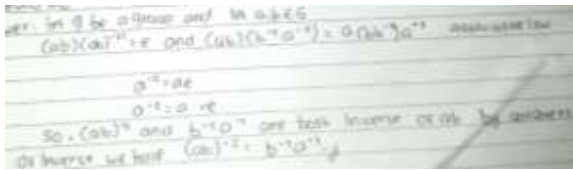 let g be a group and let a,b ∈ G
(ab)(ab)⁻¹ = e and (ab)(b⁻¹a⁻¹) = a(bb⁻¹)a⁻¹ law
a⁻¹ = ae
a⁻¹ = a = e
so, (ab)⁻¹ and b⁻¹a⁻¹ are both inverse of ab by
of inverse we have (ab)⁻¹ = b⁻¹a⁻¹